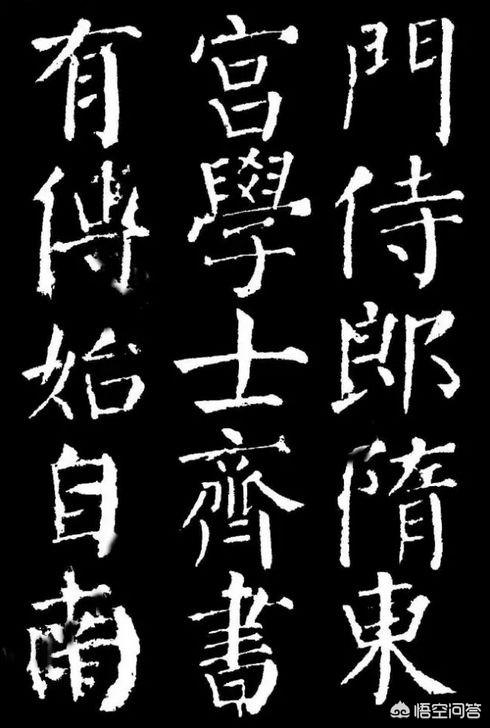 門侍郎隋東
宮學士齊書
有傳始自南
悟空问答